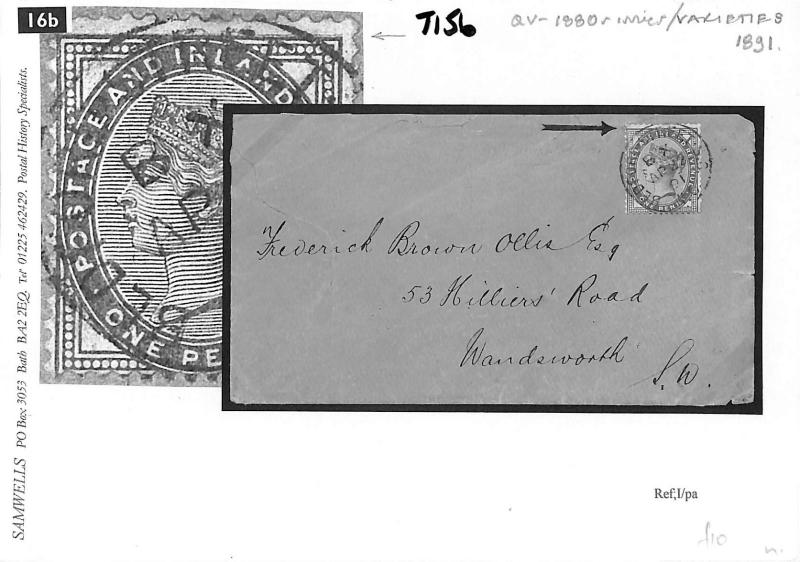 16b
T15b
QV - 1880s
VARIETIES
1891.
SAMWELLS PO Box 3053 Bath BA2 2EQ. Tel 01225 462429. Postal History Specialists.
POSTAGE AND INLAND
ONE PE
Frederick Brown Ollis Esq
53 Hilliers' Road
Wandsworth
S.W.
Ref;I/pa
£10
n.